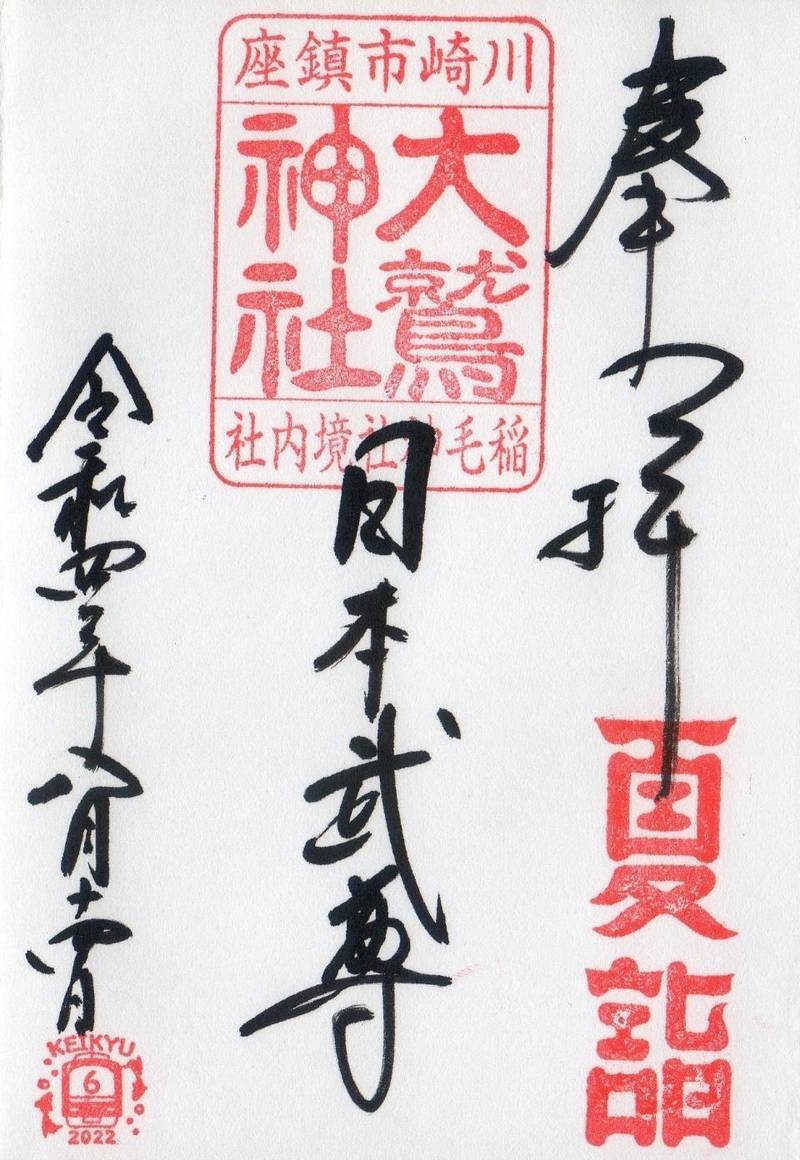 奉拝
夏詣
川崎市鎮座
大鷲
神社
稲毛神社境内社
日本武尊
令和四年八月十四日
KEIKYU
6
2022